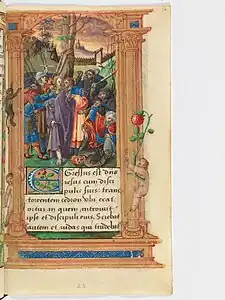 Egressus est dns
iesus cum disci
pulis suis: trans
torrentem cedron vbi erat
ortus in quem introiuit
ipse et discipuli eius. Sciebat
autem et iudas qui tradebat
22